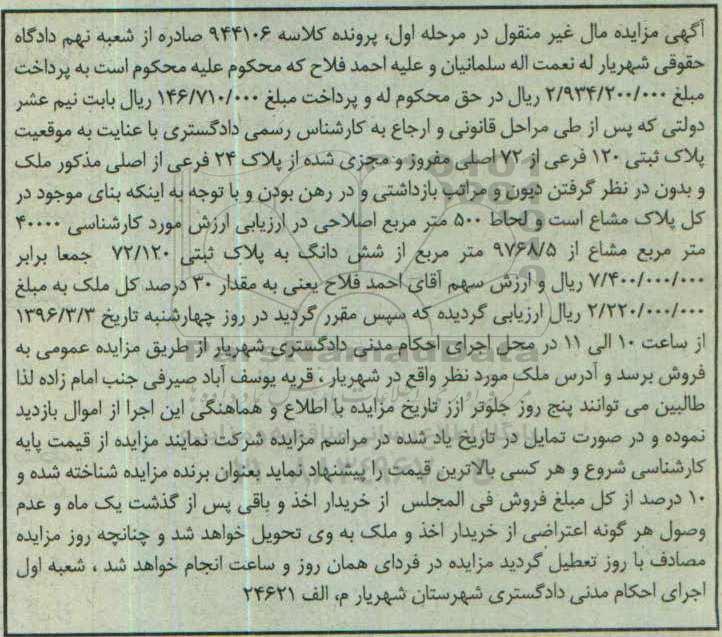 آگهی مزایده مال غیر منقول در مرحله اول، پرونده کلاسه ۹۴۴۱۰۶ صادره از شعبه نهم دادگاه
حقوقی شهریار له نعمت اله سلمانیان و علیه احمد فلاح که محکوم علیه محکوم است به پرداخت
مبلغ ۲/۹۳۴/۲۰۰/۰۰۰ ریال در حق محکوم له و پرداخت مبلغ ۱۴۶/۷۱۰/۰۰۰ ریال بابت نیم عشر
دولتی که پس از طی مراحل قانونی و ارجاع به کارشناس رسمی دادگستری با عنایت به موقعیت
پلاک ثبتی ۱۲۰ فرعی از ۷۲ اصلی مفروز و مجزی شده از پلاک ۲۴ فرعی از اصلی مذکور ملک
و بدون در نظر گرفتن دیون و مراتب بازداشتی و در رهن بودن و با توجه به اینکه بنای موجود در
کل پلاک مشاع است و لحاظ ۵۰۰ متر مربع اصلاحی در ارزیابی ارزش مورد کارشناسی ۴۰۰۰۰
متر مربع مشاع از ۹۷۶۸/۵ متر مربع از شش دانگ به پلاک ثبتی ۷۲/۱۲۰ جمعا برابر
۷/۴۰۰/۰۰۰/۰۰۰ ریال و ارزش سهم آقای احمد فلاح یعنی به مقدار ۳۰ درصد کل ملک به مبلغ
۲/۲۲۰/۰۰۰/۰۰۰ ریال ارزیابی گردیده که سپس مقرر گردید در روز چهارشنبه تاریخ ۱۳۹۶/۳/۳
از ساعت ۱۰ الی ۱۱ در محل اجرای احکام مدنی دادگستری شهریار از طریق مزایده عمومی به
فروش برسد و آدرس ملک مورد نظر واقع در شهریار ، قریه یوسف آباد صیرفی جنب امام زاده لذا
طالبین می توانند پنج روز جلوتر ازز تاریخ مزایده با اطلاع و هماهنگی این اجرا از اموال بازدید
نموده و در صورت تمایل در تاریخ یاد شده در مراسم مزایده شرکت نمایند مزایده از قیمت پایه
کارشناسی شروع و هر کسی بالاترین قیمت را پیشنهاد نماید بعنوان برنده مزایده شناخته شده و
۱۰ درصد از کل مبلغ فروش فی المجلس از خریدار اخذ و باقی پس از گذشت یک ماه و عدم
وصول هر گونه اعتراضی از خریدار اخذ و ملک به وی تحویل خواهد شد و چنانچه روز مزایده
مصادف با روز تعطیل گردید مزایده در فردای همان روز و ساعت انجام خواهد شد ، شعبه اول
اجرای احکام مدنی دادگستری شهرستان شهریار م، الف ۲۴۶۲۱